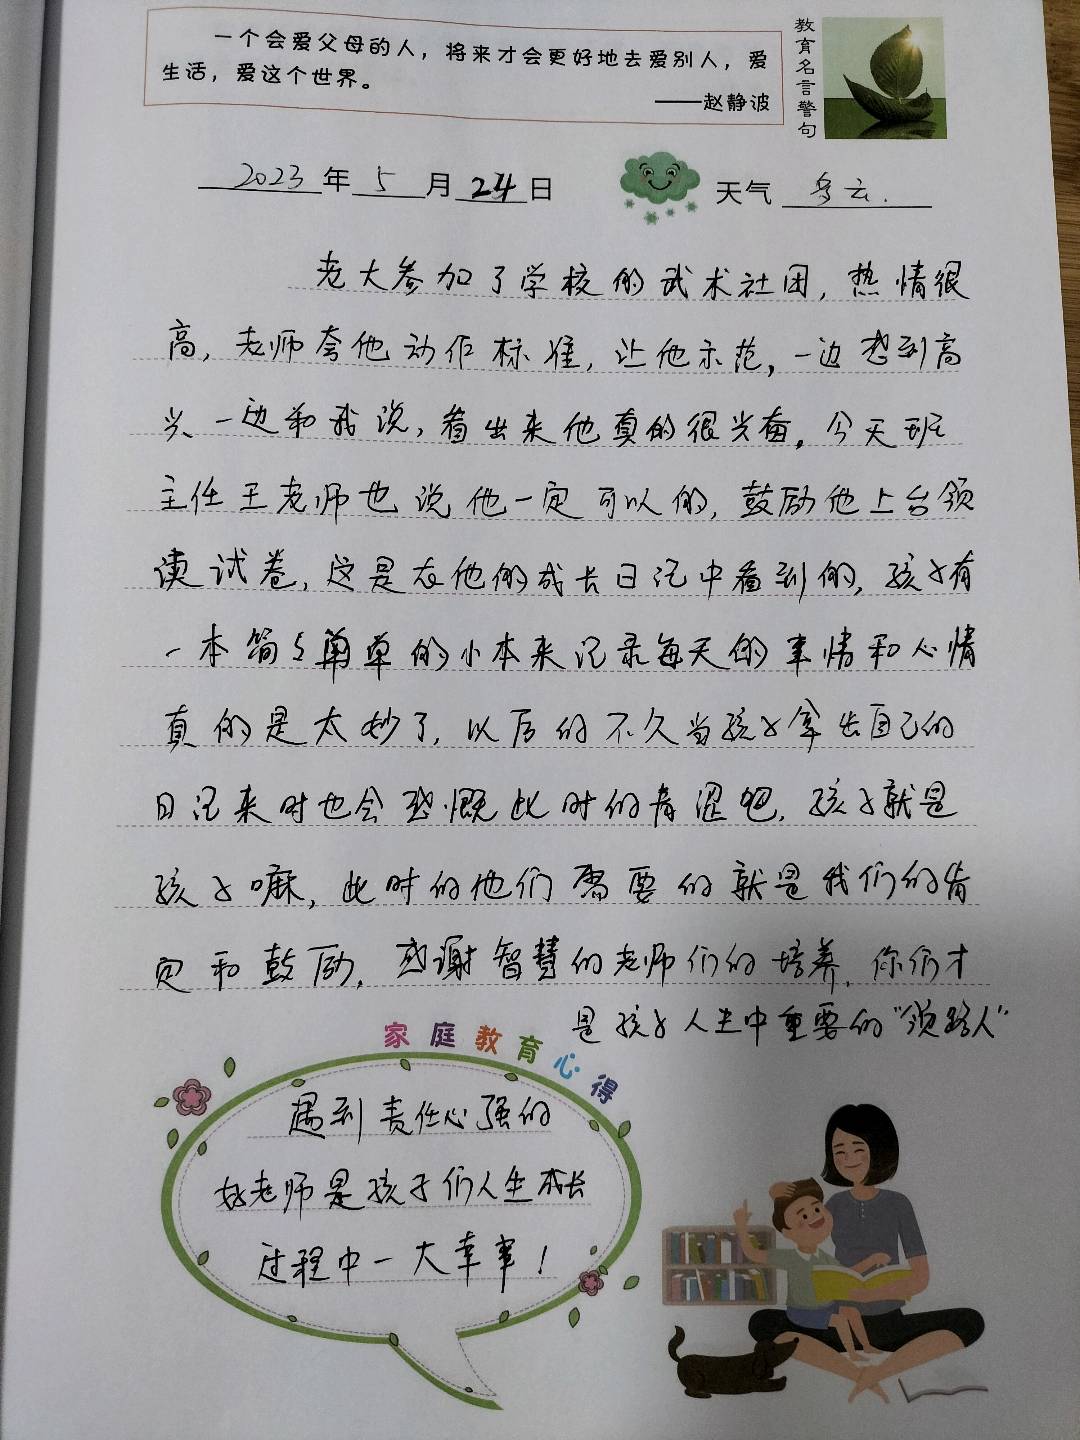 一个会爱父母的人，将来才会更好地去爱别人，爱
生活，爱这个世界。
——赵静波
教育名言警句
2023年5月24日
天气 多云.
老大参加了学校的武术社团，热情很
高，老师夸他动作标准，让他示范，一边感到高
兴、一边和我说，看出来他真的很兴奋。今天班
主任王老师也说他一定可以的，鼓励他上台领
读试卷，这是在他的成长日记中看到的，孩子有
一本简简单单的小本来记录每天的事情和心情
真的是太妙了，以后的不久当孩子拿出自己的
日记来时也会感慨此时的青涩吧，孩子就是
孩子嘛，此时的他们需要的就是我们的肯
定和鼓励，感谢智慧的老师们的培养，你们才
是孩子人生中重要的“领路人”
家庭教育心得
遇到责任心强的
好老师是孩子们人生成长
过程中一大幸事！